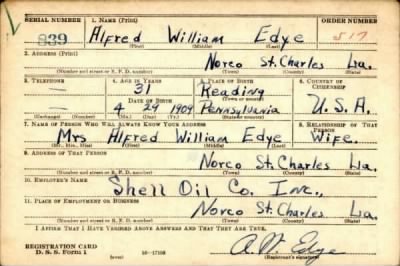 SERIAL NUMBER 1. NAME (Print) ORDER NUMBER
839 Alfred William Edye 517
(First) (Middle) (Last)
2. ADDRESS (Print)
Norco St. Charles La.
(Number and street or R. F. D. number) (Town) (County) (State)
3. TELEPHONE 4. AGE IN YEARS 5. PLACE OF BIRTH 6. COUNTRY OF CITIZENSHIP
— 31 Reading
(Town or county)
DATE OF BIRTH
— 4 29 1909 Pennsylvania U.S.A.
(Exchange) (Number) (Mo.) (Day) (Yr.) (State or country)
7. NAME OF PERSON WHO WILL ALWAYS KNOW YOUR ADDRESS 8. RELATIONSHIP OF THAT PERSON
Mrs Alfred William Edye Wife.
(Mr., Mrs., Miss) (First) (Middle) (Last)
9. ADDRESS OF THAT PERSON
Norco St. Charles La.
(Number and street or R. F. D. number) (Town) (County) (State)
10. EMPLOYER'S NAME
Shell Oil Co. Inc.,
11. PLACE OF EMPLOYMENT OR BUSINESS
Norco St. Charles La.
(Number and street or R. F. D. number) (Town) (County) (State)
I AFFIRM THAT I HAVE VERIFIED ABOVE ANSWERS AND THAT THEY ARE TRUE.
REGISTRATION CARD
D. S. S. Form 1 16—17105 A. W. Edye
(over) (Registrant's signature)